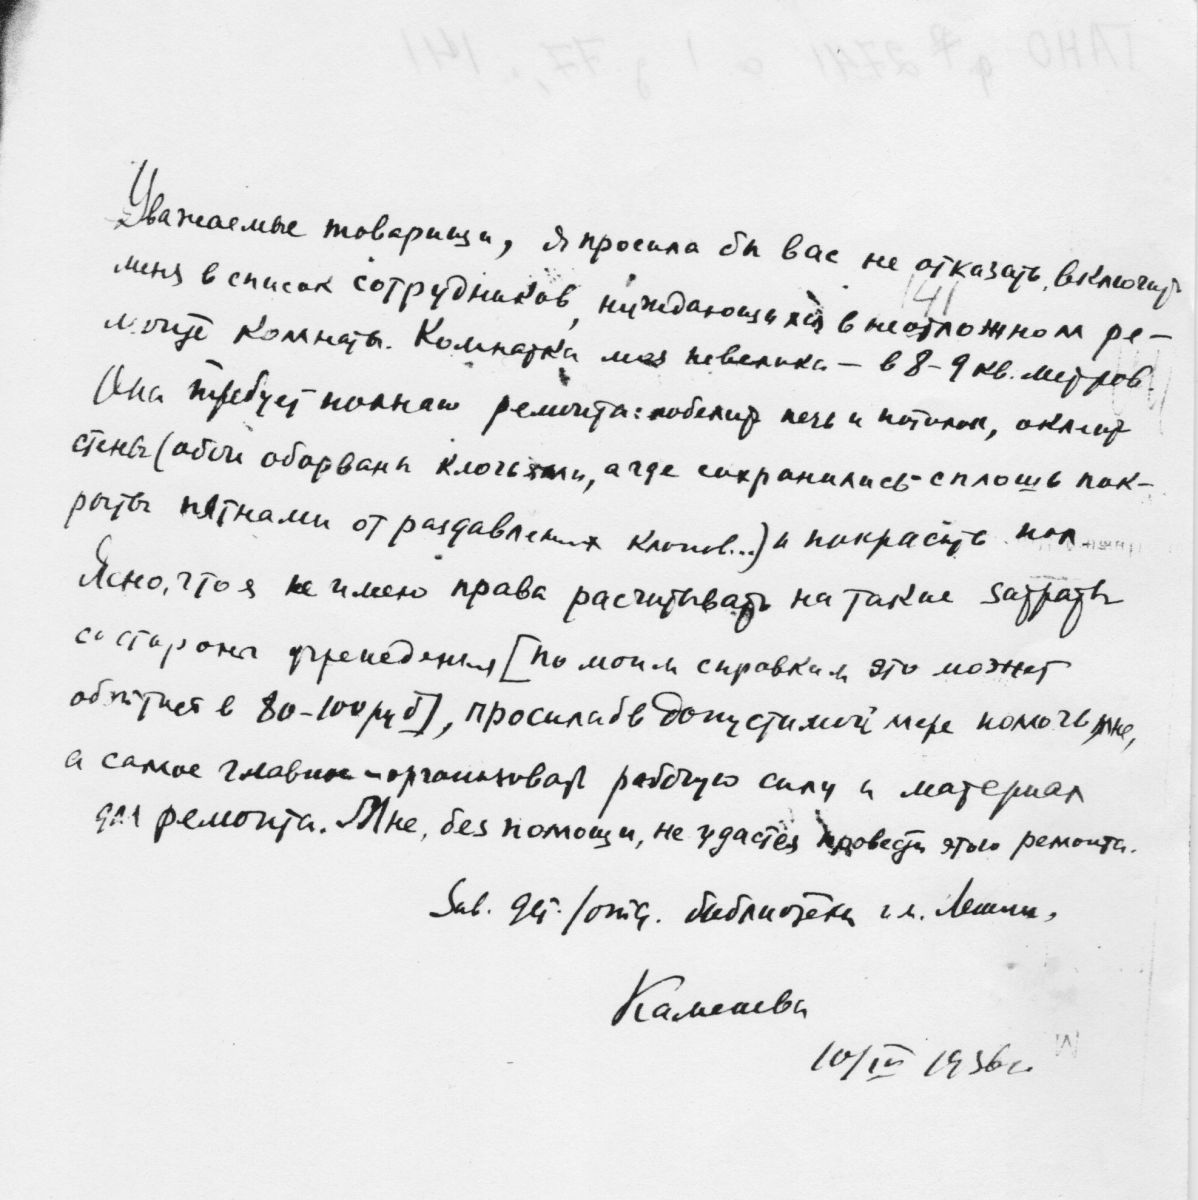 Уважаемые товарищи, я просила бы вас не отказать включить
меня в список сотрудников, нуждающихся в неотложном ре-
монте комнаты. Комнатка моя невелика – в 8–9 кв. метров.
Она требует полного ремонта: побелить печь и потолок, оклеить
стены (обои оборваны клочьями, а где сохранились – сплошь пок-
рыты пятнами от раздавленных клопов...) и покрасить пол
Ясно, что я не имею права расчитывать на такие затраты
со стороны учреждения [по моим справкам это может
обойтись в 80–100 руб], просила б в допустимой мере помочь мне,
а самое главное – организовать рабочую силу и материал
для ремонта. Мне, без помощи, не удастся провести этого ремонта.
Зав. дет. /отд. библиотеки им. Ленина,
Каменева
10/IV 1936 г.
141